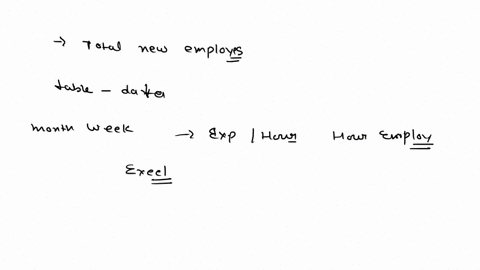 → Total new employes
table - data
month week → Exp / Hour Hour Employ
Excel